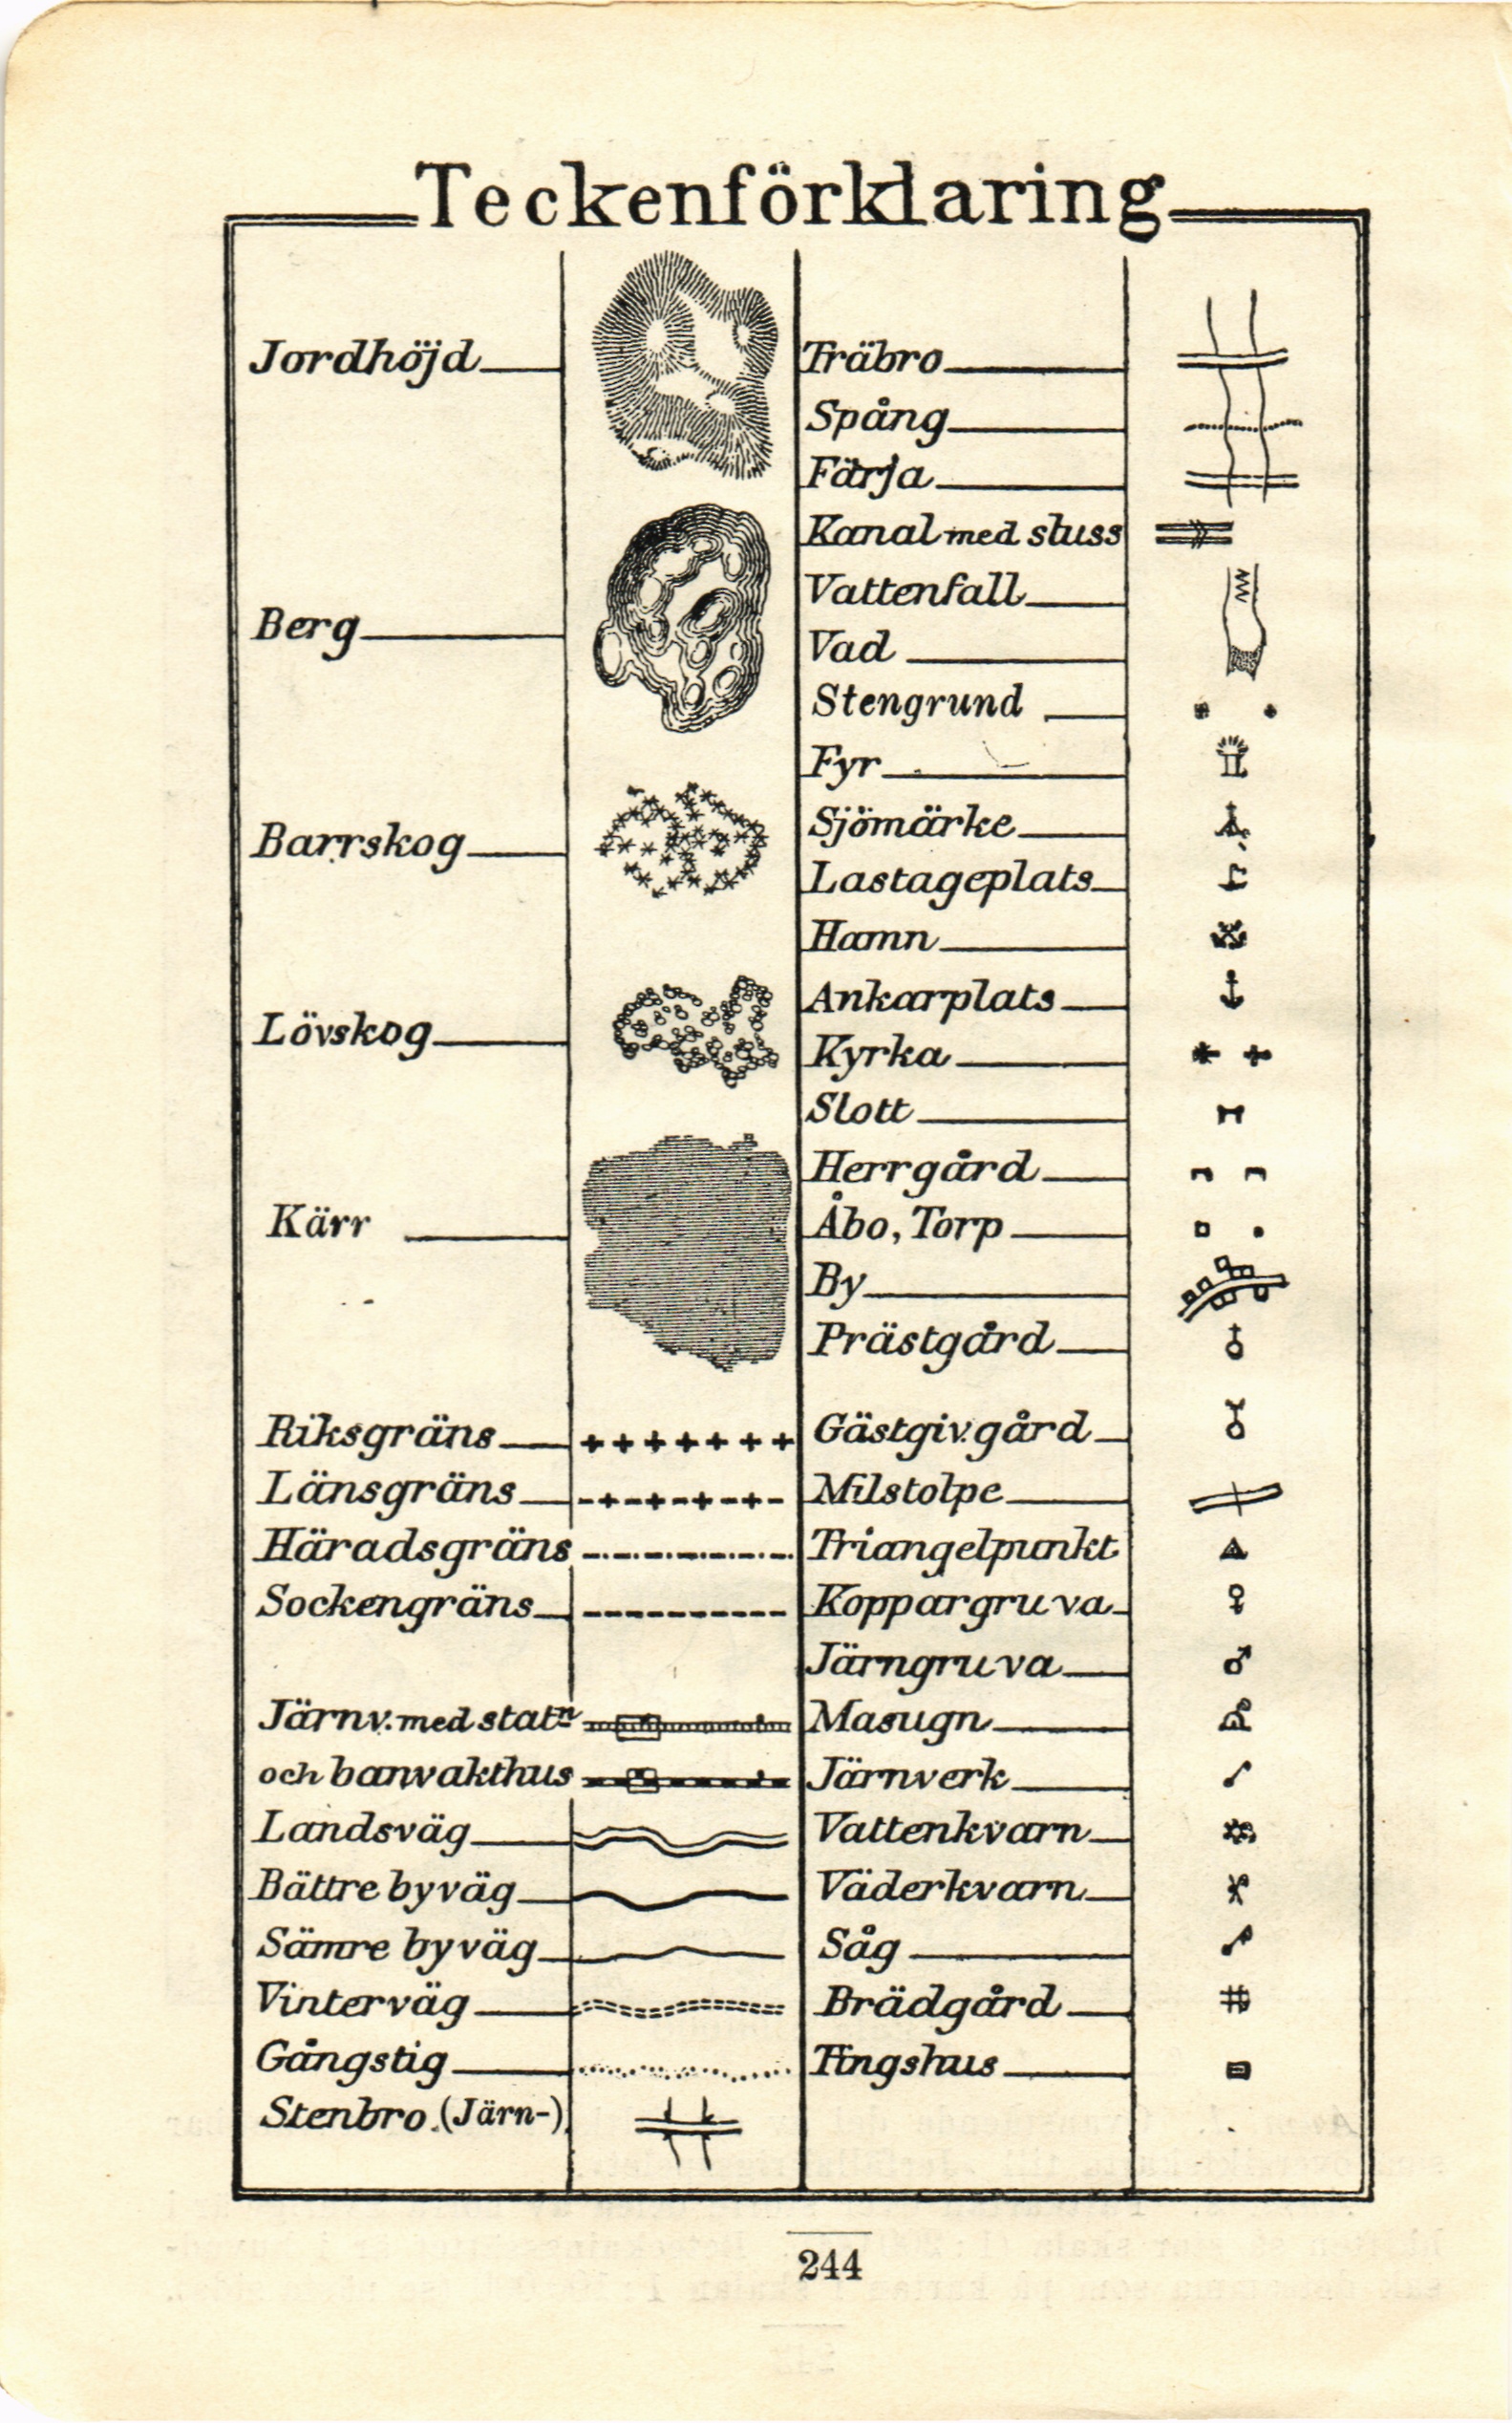 Teckenförklaring
Jordhöjd
Berg
Barrskog
Lövskog
Kärr
Riksgräns
Länsgräns
Häradsgräns
Sockengräns
Järnv. med statn
och banvakthus
Landsväg
Bättre byväg
Sämre byväg
Vinterväg
Gångstig
Stenbro (Järn-)
Träbro
Spång
Färja
Kanal med sluss
Vattenfall
Vad
Stengrund
Fyr
Sjömärke
Lastageplats
Hamn
Ankarplats
Kyrka
Slott
Herrgård
Åbo, Torp
By
Prästgård
Gästgiv. gård
Milstolpe
Triangelpunkt
Koppargruva
Järngruva
Masugn
Järnverk
Vattenkvarn
Väderkvarn
Såg
Brädgård
Tingshus
244